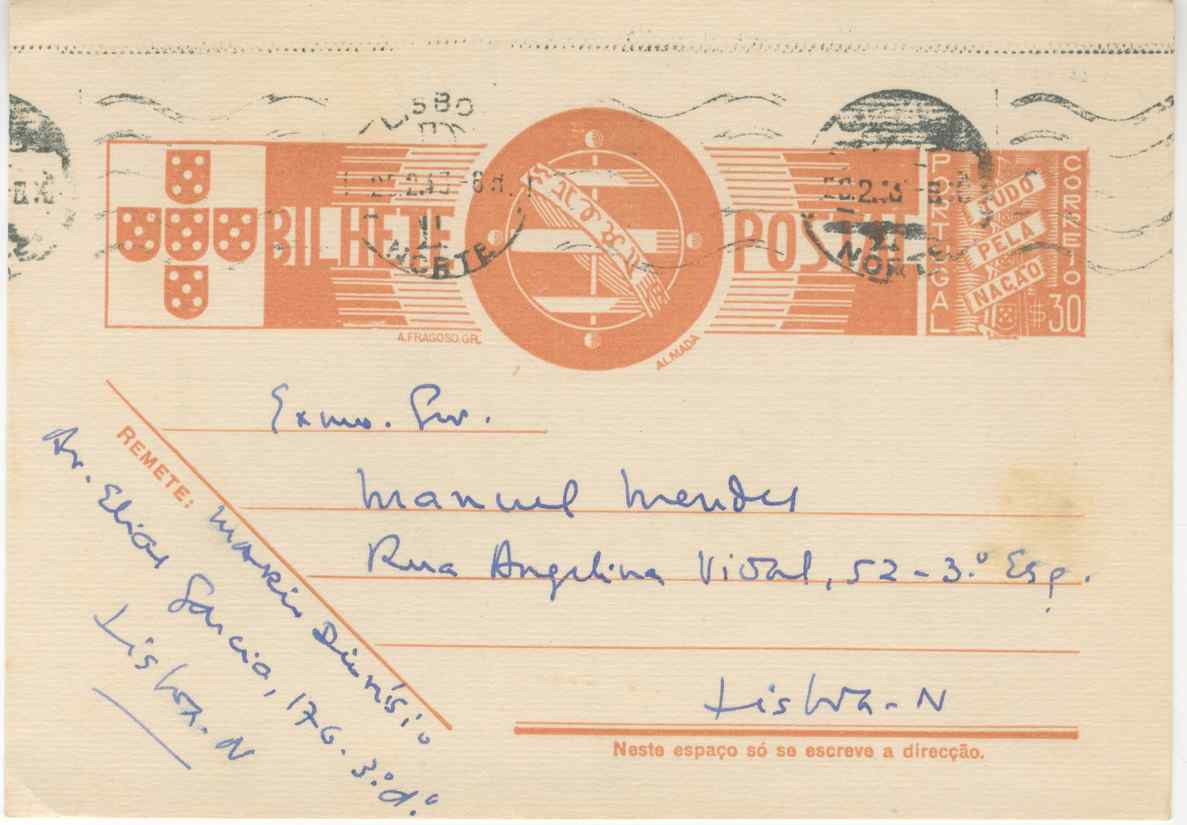 LISBO
NORTE
NORTE
BILHETE POSTAL
PORTUGAL
CORREIO
TUDO
PELA
NAÇÃO
$30
A.FRAGOSO.GR.
ALMADA
Exmo. Snr.
Manuel Mendes
Rua Angelina Vidal, 52-3.º Esq.
Lisboa-N
Neste espaço só se escreve a direcção.
REMETE: Mario Dionísio
Av. Elias Garcia, 176.3.º d.º
Lisboa-N